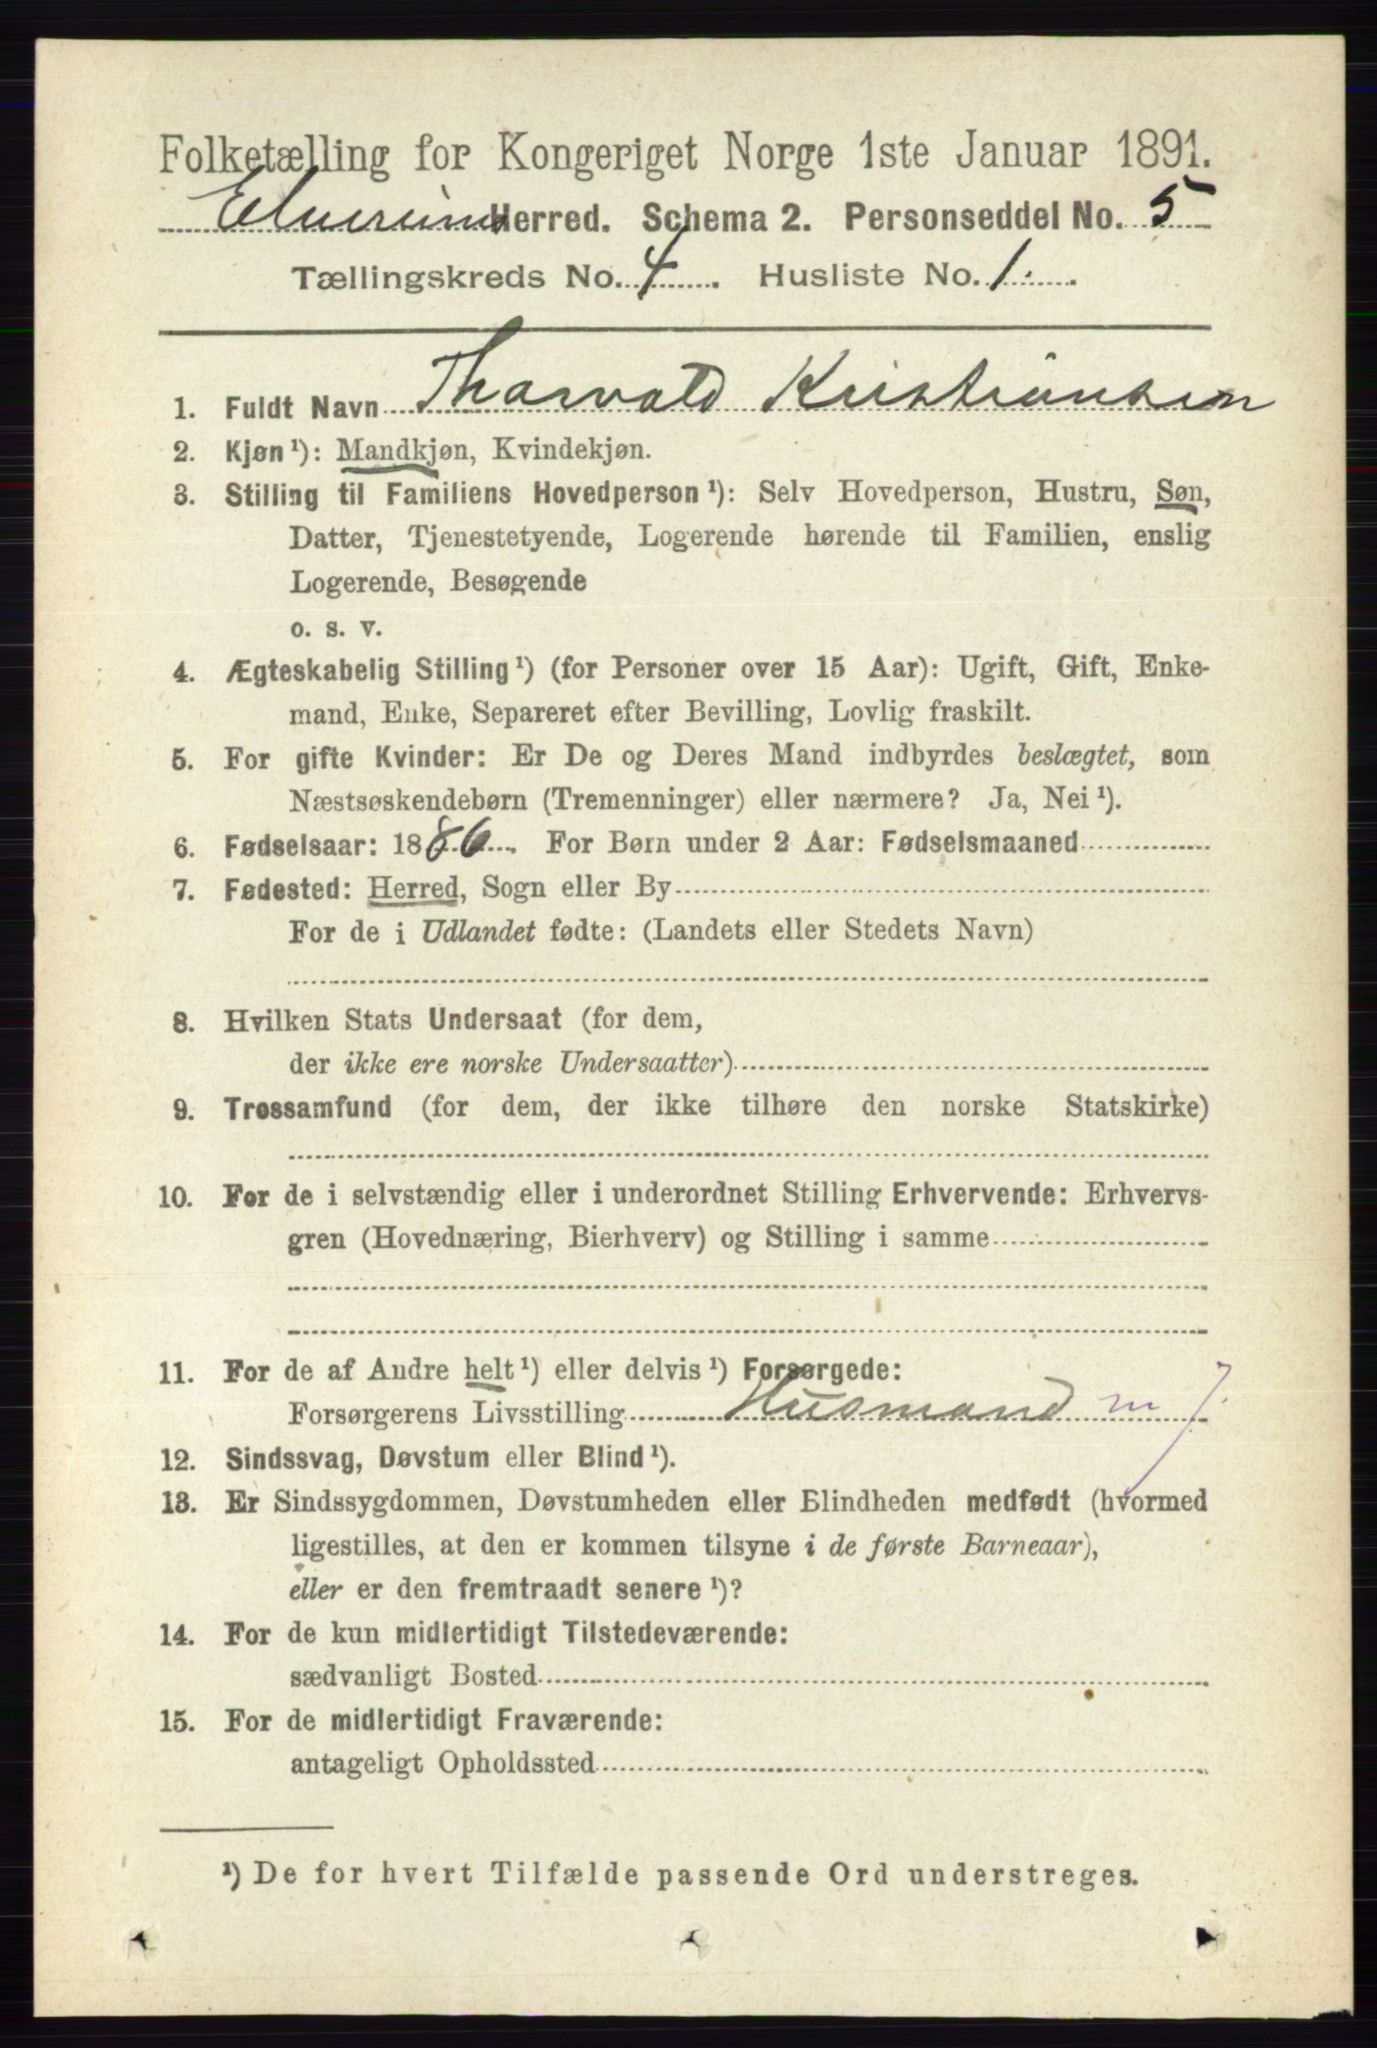 Folketælling for Kongeriget Norge 1ste Januar 1891.
Elverums Herred. Schema 2. Personseddel No. 5
Tællingskreds No. 4. Husliste No. 1.
1. Fuldt Navn Thorvald Kristiansen
2. Kjøn ¹): Mandkjøn, Kvindekjøn.
3. Stilling til Familiens Hovedperson ¹): Selv Hovedperson, Hustru, Søn,
Datter, Tjenestetyende, Logerende hørende til Familien, enslig
Logerende, Besøgende
o. s. v.
4. Ægteskabelig Stilling ¹) (for Personer over 15 Aar): Ugift, Gift, Enke-
mand, Enke, Separeret efter Bevilling, Lovlig fraskilt.
5. For gifte Kvinder: Er De og Deres Mand indbyrdes beslægtet, som
Næstsøskendebørn (Tremenninger) eller nærmere? Ja, Nei ¹).
6. Fødselsaar: 1886. For Børn under 2 Aar: Fødselsmaaned
7. Fødested: Herred, Sogn eller By
For de i Udlandet fødte: (Landets eller Stedets Navn)
8. Hvilken Stats Undersaat (for dem,
der ikke ere norske Undersaatter)
9. Trossamfund (for dem, der ikke tilhøre den norske Statskirke)
10. For de i selvstændig eller i underordnet Stilling Erhvervende: Erhvervs-
gren (Hovednæring, Bierhverv) og Stilling i samme
11. For de af Andre helt ¹) eller delvis ¹) Forsørgede:
Forsørgerens Livsstilling Husmand m J.
12. Sindssvag, Døvstum eller Blind ¹).
13. Er Sindssygdommen, Døvstumheden eller Blindheden medfødt (hvormed
ligestilles, at den er kommen tilsyne i de første Barneaar),
eller er den fremtraadt senere ¹)?
14. For de kun midlertidigt Tilstedeværende:
sædvanligt Bosted
15. For de midlertidigt Fraværende:
antageligt Opholdssted
¹) De for hvert Tilfælde passende Ord understreges.